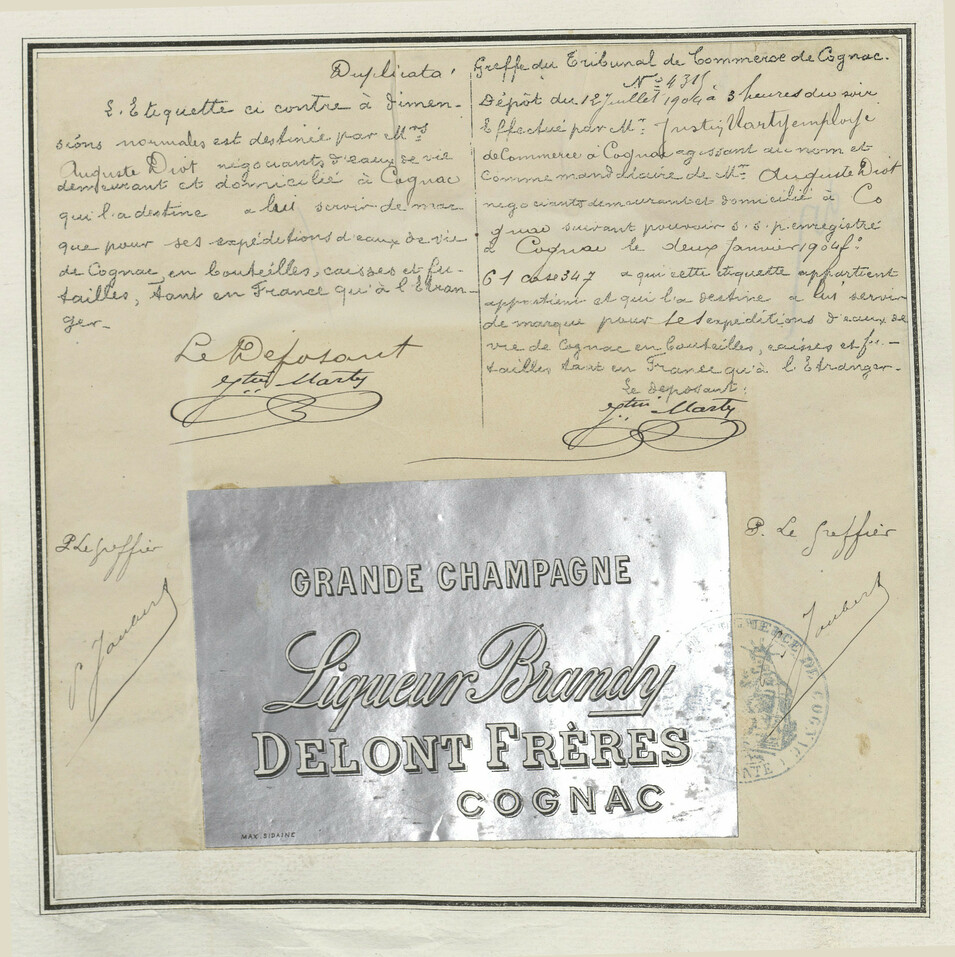 Duplicata.
L'Etiquette ci contre à dimen-
sions normales est destinée par Mrs
Auguste Diot négociants d'eaux de vie
demeurant et domicilié à Cognac
qui l'a destine a lui servir de mar-
que pour ses expéditions d'eaux de vie
de Cognac, en bouteilles, caisses et fu-
tailles, tant en France qu'à l'Etran-
ger.-
Le Déposant
Jtin Marty
Greffe du Tribunal de Commerce de Cognac.
Nº 4315
Dépôt du 12 Juillet 1904 à 3 heures du soir
Effectué par Mr. Justin Marty employé
de Commerce à Cognac agissant au nom et
comme mandataire de Mrs Auguste Diot
négociants demeurant et domicilié à Co
gnac suivant pouvoir s.s.p. enregistré
à Cognac le deux Janvier 1904 fº
61 case 347 a qui cette étiquette appartient
appartient et qui l'a destine a lui servir
de marque pour ses expéditions d'eaux de
vie de Cognac en bouteilles, caisses et fu-
tailles tant en France qu'à l'Etranger-
Le déposant:
Jtin Marty
P. Le Greffier
Joubert
P. Le Greffier
Joubert
GRANDE CHAMPAGNE
Liqueur Brandy
DELONT FRÈRES
COGNAC
MAX. SIDAINE
COMMERCE DE COGNAC